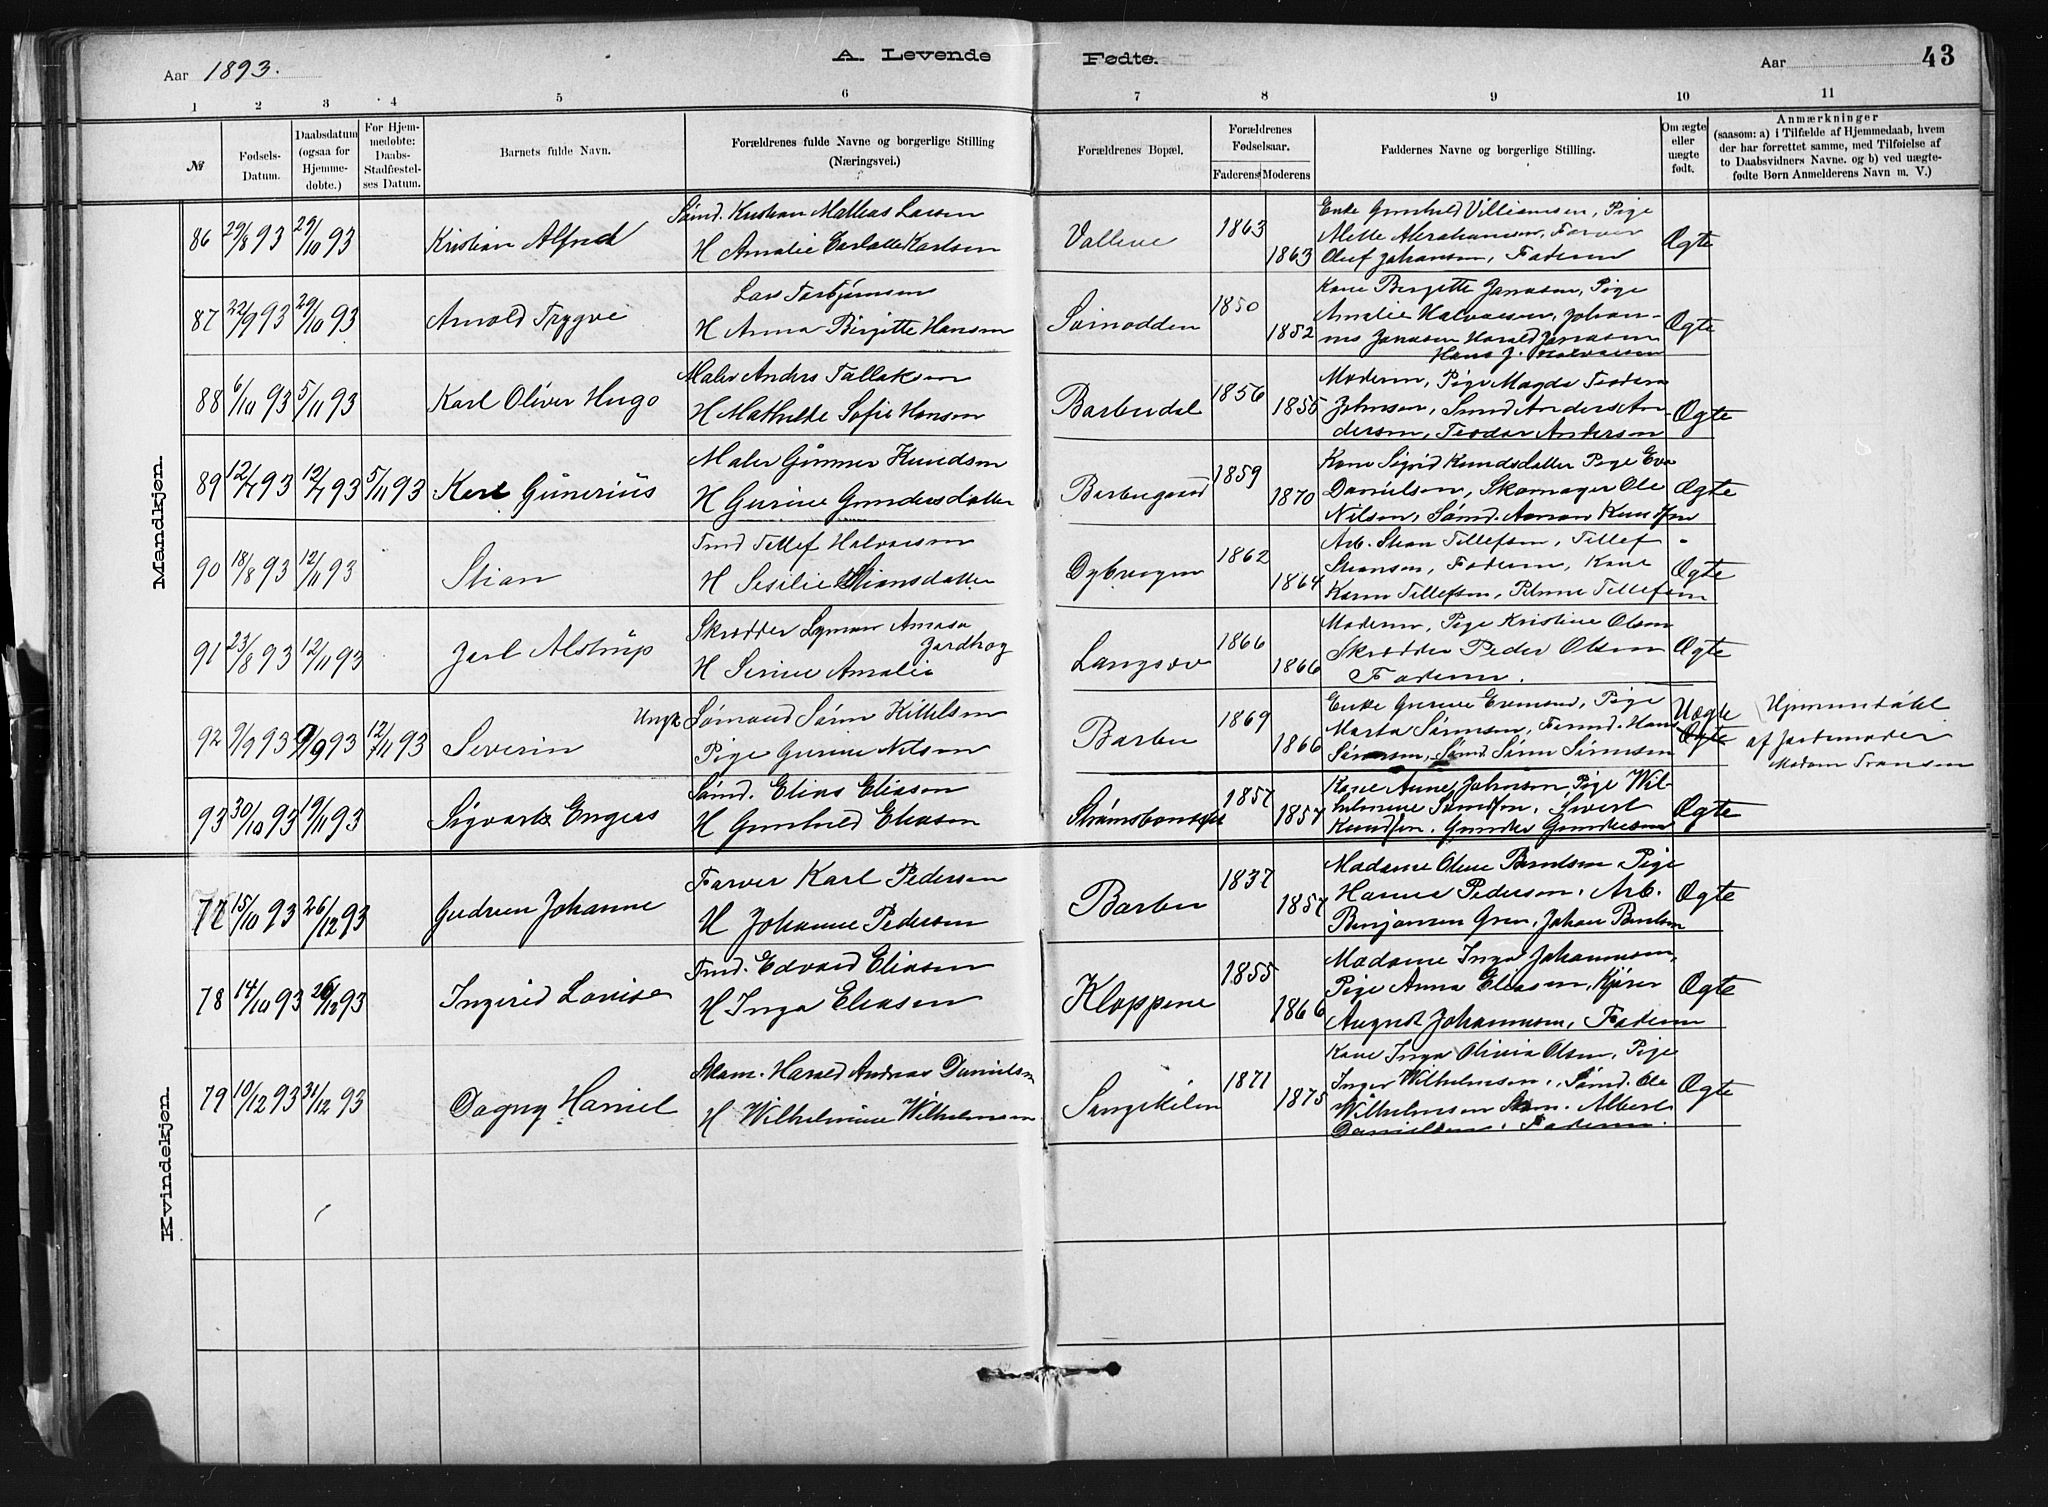 Aar 1893.
A. Levende Fødte.
Aar
43
1 2 3 4 5 6 7 8 9 10 11
№
Fødsels-Datum.
Daabsdatum (ogsaa for Hjemmedøbte.)
For Hjemmedøbte: Daabs-Stadfæstelses Datum.
Barnets fulde Navn.
Forældrenes fulde Navne og borgerlige Stilling (Næringsvei.)
Forældrenes Bopæl.
Forældrenes Fødselsaar.
Faderens Moderens
Faddernes Navne og borgerlige Stilling.
Om ægte eller uægte født.
Anmærkninger
(saasom: a) i Tilfælde af Hjemmedaab, hvem
der har forrettet samme, med Tilføielse af
to Daabsvidners Navne. og b) ved uægte-
fødte Børn Anmelderens Navn m. V.)
Mandkjøn.
86 29/8 93 29/10 93 Kristian Alfred
Sømd. Kristian Mathias Larsen
H Amalie Charlotte Karlsen
Vallene 1863 1863
Enke Gunhild Villiamsen, Pige
Mette Abrahamsen, Farver
Oluf Johansen, Faderen
Ægte
87 22/9 93 29/10 93 Arnold Trygve
Lars Torbjørnsen
H Anna Birgitte Hansen
Songe 1850 1852
Kone Birgitte Janasen, Pige
Amalie Halvorsen, Johan-
nes Janasen Harald Janasen
Hans J. Halvorsen
Ægte
88 6/10 93 5/11 93 Karl Oliver Hugo
Maler Anders Tallaksen
H Mathilde Sofie Hansen
Barbudal 1856 1856
Moderen, Pige Magda Teodora
Johnsen, Sømd Anders An-
dersen, Teodor Andersen
Ægte
89 12/7 93 12/7 93 5/11 93 Karl Günerius
Maler Günner Knudsen
H Gurine Gundersdatter
1859 1870
Kone Sigrid Knudsdatter Pige Eva
Danielsen, Skomager Ole
Nilsen, Sømd. Knudsen
Ægte
90 18/8 93 12/11 93 Stian
Tmd Tellef Halvorsen
H Sesilie Stiansdatter
Dybvigen 1862 1864
Arb. Stian Tellefsen, Tellef
Stiansen, Faderen, Kone
Karen Tellefsen, Tellefsen
Ægte
91 23/8 93 12/11 93 Jarl Alstrüp
Skrædder Lyman Amasa
H Serine Amalie
Langsæv 1866 1866
Moderen, Pige Kristine Olsen
Skrædder Peder Olsen
Faderen.
Ægte
92 9/9 93 9/9 93 12/11 93 Severin
Ungk. Sømand Sørn Kittelsen
Pige Gurine Nilsen
Barbu 1869 1866
Enke Gurine Evensen, Pige
Marta Sørensen, Hans
Sørensen, Sømd Sørn Sørensen
Uægte
Ægte
Hjemmedøbt
af Jordemoder
Madam Fransen
93 30/10 93 19/11 93 Sigvart Engeas
Sømd. Elias Eliasen
H Gunhild Eliasen
1857 1857
Kone Anne Johnsen Pige Wil-
helmine Sivert
Knudsen.
Ægte
Kvindekjøn.
77 15/10 93 26/12 93 Gudrun Johanne
Farver Karl Pedersen
H Johanne Pedersen
Barbu 1837 1857
Madame Olene Berntsen, Pige
Hanna Pedersen, Arb.
Benjamin Gren, Johan Berntsen
Ægte
78 14/10 93 26/12 93 Ingerid Lovise
Tmd. Edvard Eliasen
H Inga Eliasen
Kloppene 1855 1866
Madame Inga Johannesen,
Pige Anna Eliasen, Kjører
August Johannesen, Faderen
Ægte
79 10/12 93 31/12 93 Dagny Harriel
Harald Andreas Danielsen
H Wilhelmine Wilhelmsen
Sangekilen 1871 1875
Kone Inga Olivia Olsen, Pige
Inger Wilhelmsen, Sømd. Ole
Wilhelmsen Albert
Danielsen, Faderen.
Ægte